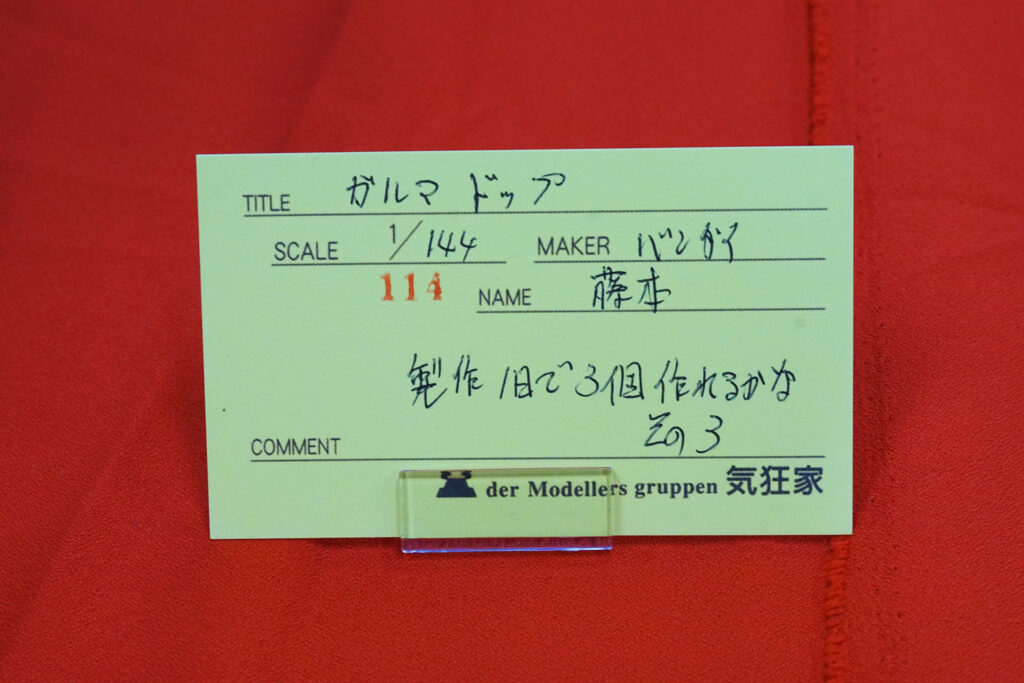 TITLE ガルマ ドップ
SCALE 1/144 MAKER バンダイ
114 NAME 藤本
製作 1日で3個作れるかな
その3
COMMENT
der Modellers gruppen 気狂家